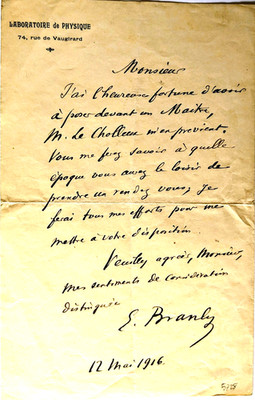 LABORATOIRE de PHYSIQUE
74, rue de Vaugirard
Monsieur
J'ai l'heureuse fortune d'avoir
à poser devant un Maître,
M. Le Cholleux m'en prévient.
Vous me ferez savoir à quelle
époque vous avez le loisir de
prendre un rendez vous, je
ferai tous mes efforts pour me
mettre à votre disposition.
Veuillez agréer, Monsieur,
mes sentiments de considération
distinguée
E. Branly
12 Mai 1916.